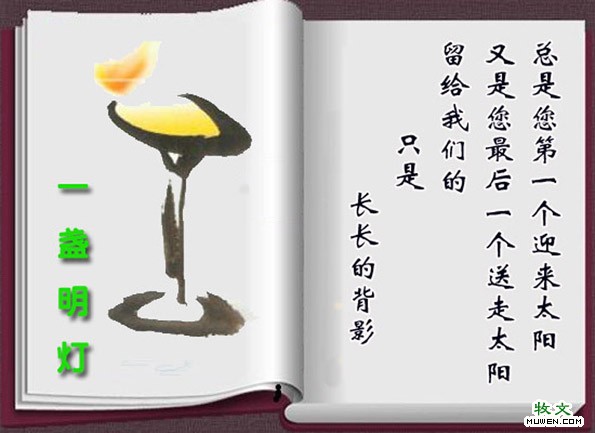 一盏明灯
总是您第一个迎来太阳
又是您最后一个送走太阳
留给我们的
只是
长长的背影
牧文
MUWEN.COM